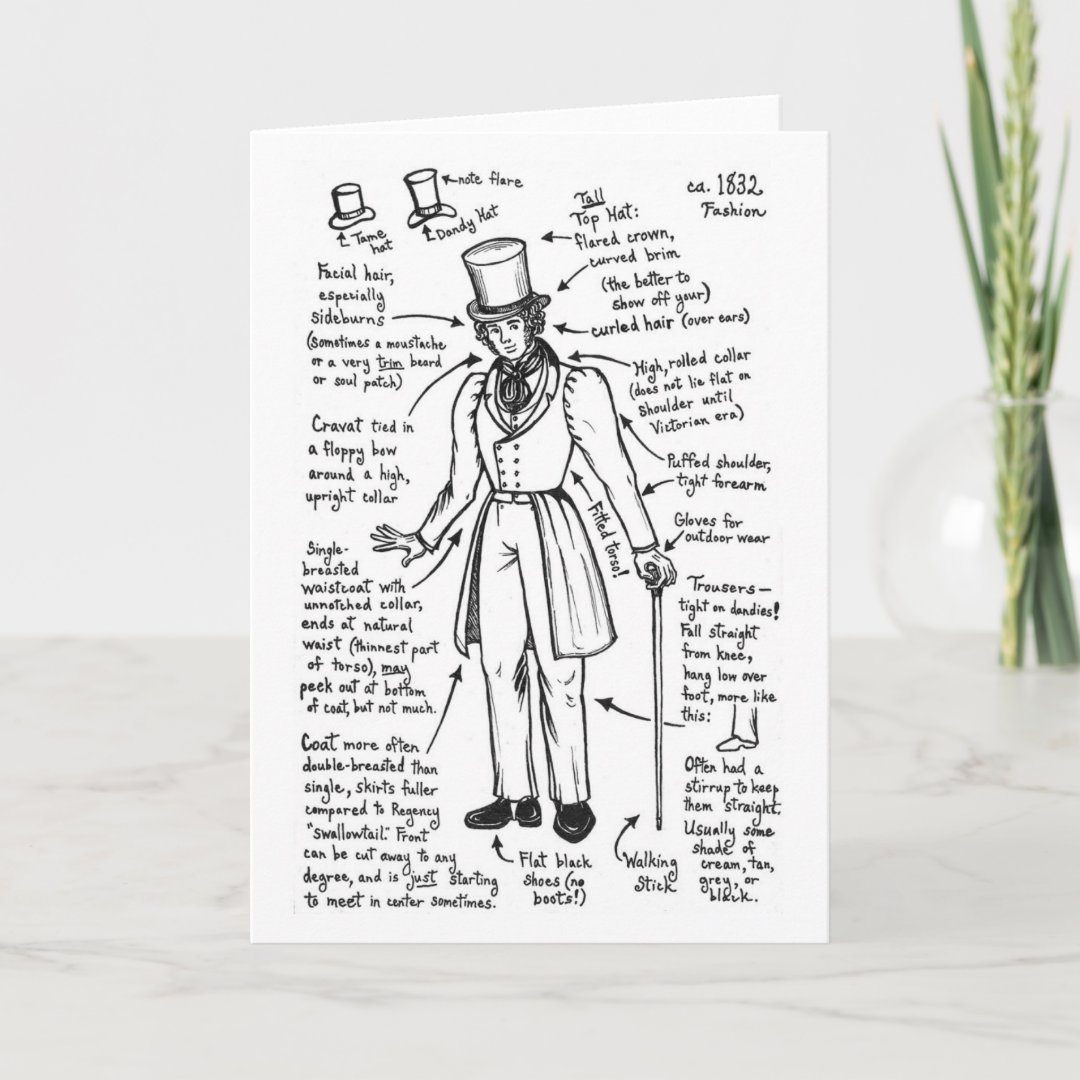 note flare
Tame
hat
Dandy Hat
ca. 1832
Fashion
Tall
Top Hat:
flared crown,
curved brim
(the better to
show off your)
curled hair (over ears)
Facial hair,
especially
sideburns
(sometimes a moustache
or a very trim beard
or soul patch)
High, rolled collar
(does not lie flat on
shoulder until
Victorian era)
Cravat tied in
a floppy bow
around a high,
upright collar
Puffed shoulder,
tight forearm
Fitted torso!
Gloves for
outdoor wear
Single-
breasted
waistcoat with
unnotched collar,
ends at natural
waist (thinnest part
of torso), may
peek out at bottom
of coat, but not much.
Trousers—
tight on dandies!
Fall straight
from knee,
hang low over
foot, more like
this:
Often had a
stirrup to keep
them straight.
Usually some
shade of
cream, tan,
grey, or
black.
Coat more often
double-breasted than
single, skirts fuller
compared to Regency
"swallowtail." Front
can be cut away to any
degree, and is just starting
to meet in center sometimes.
Flat black
shoes (no
boots!)
Walking
Stick